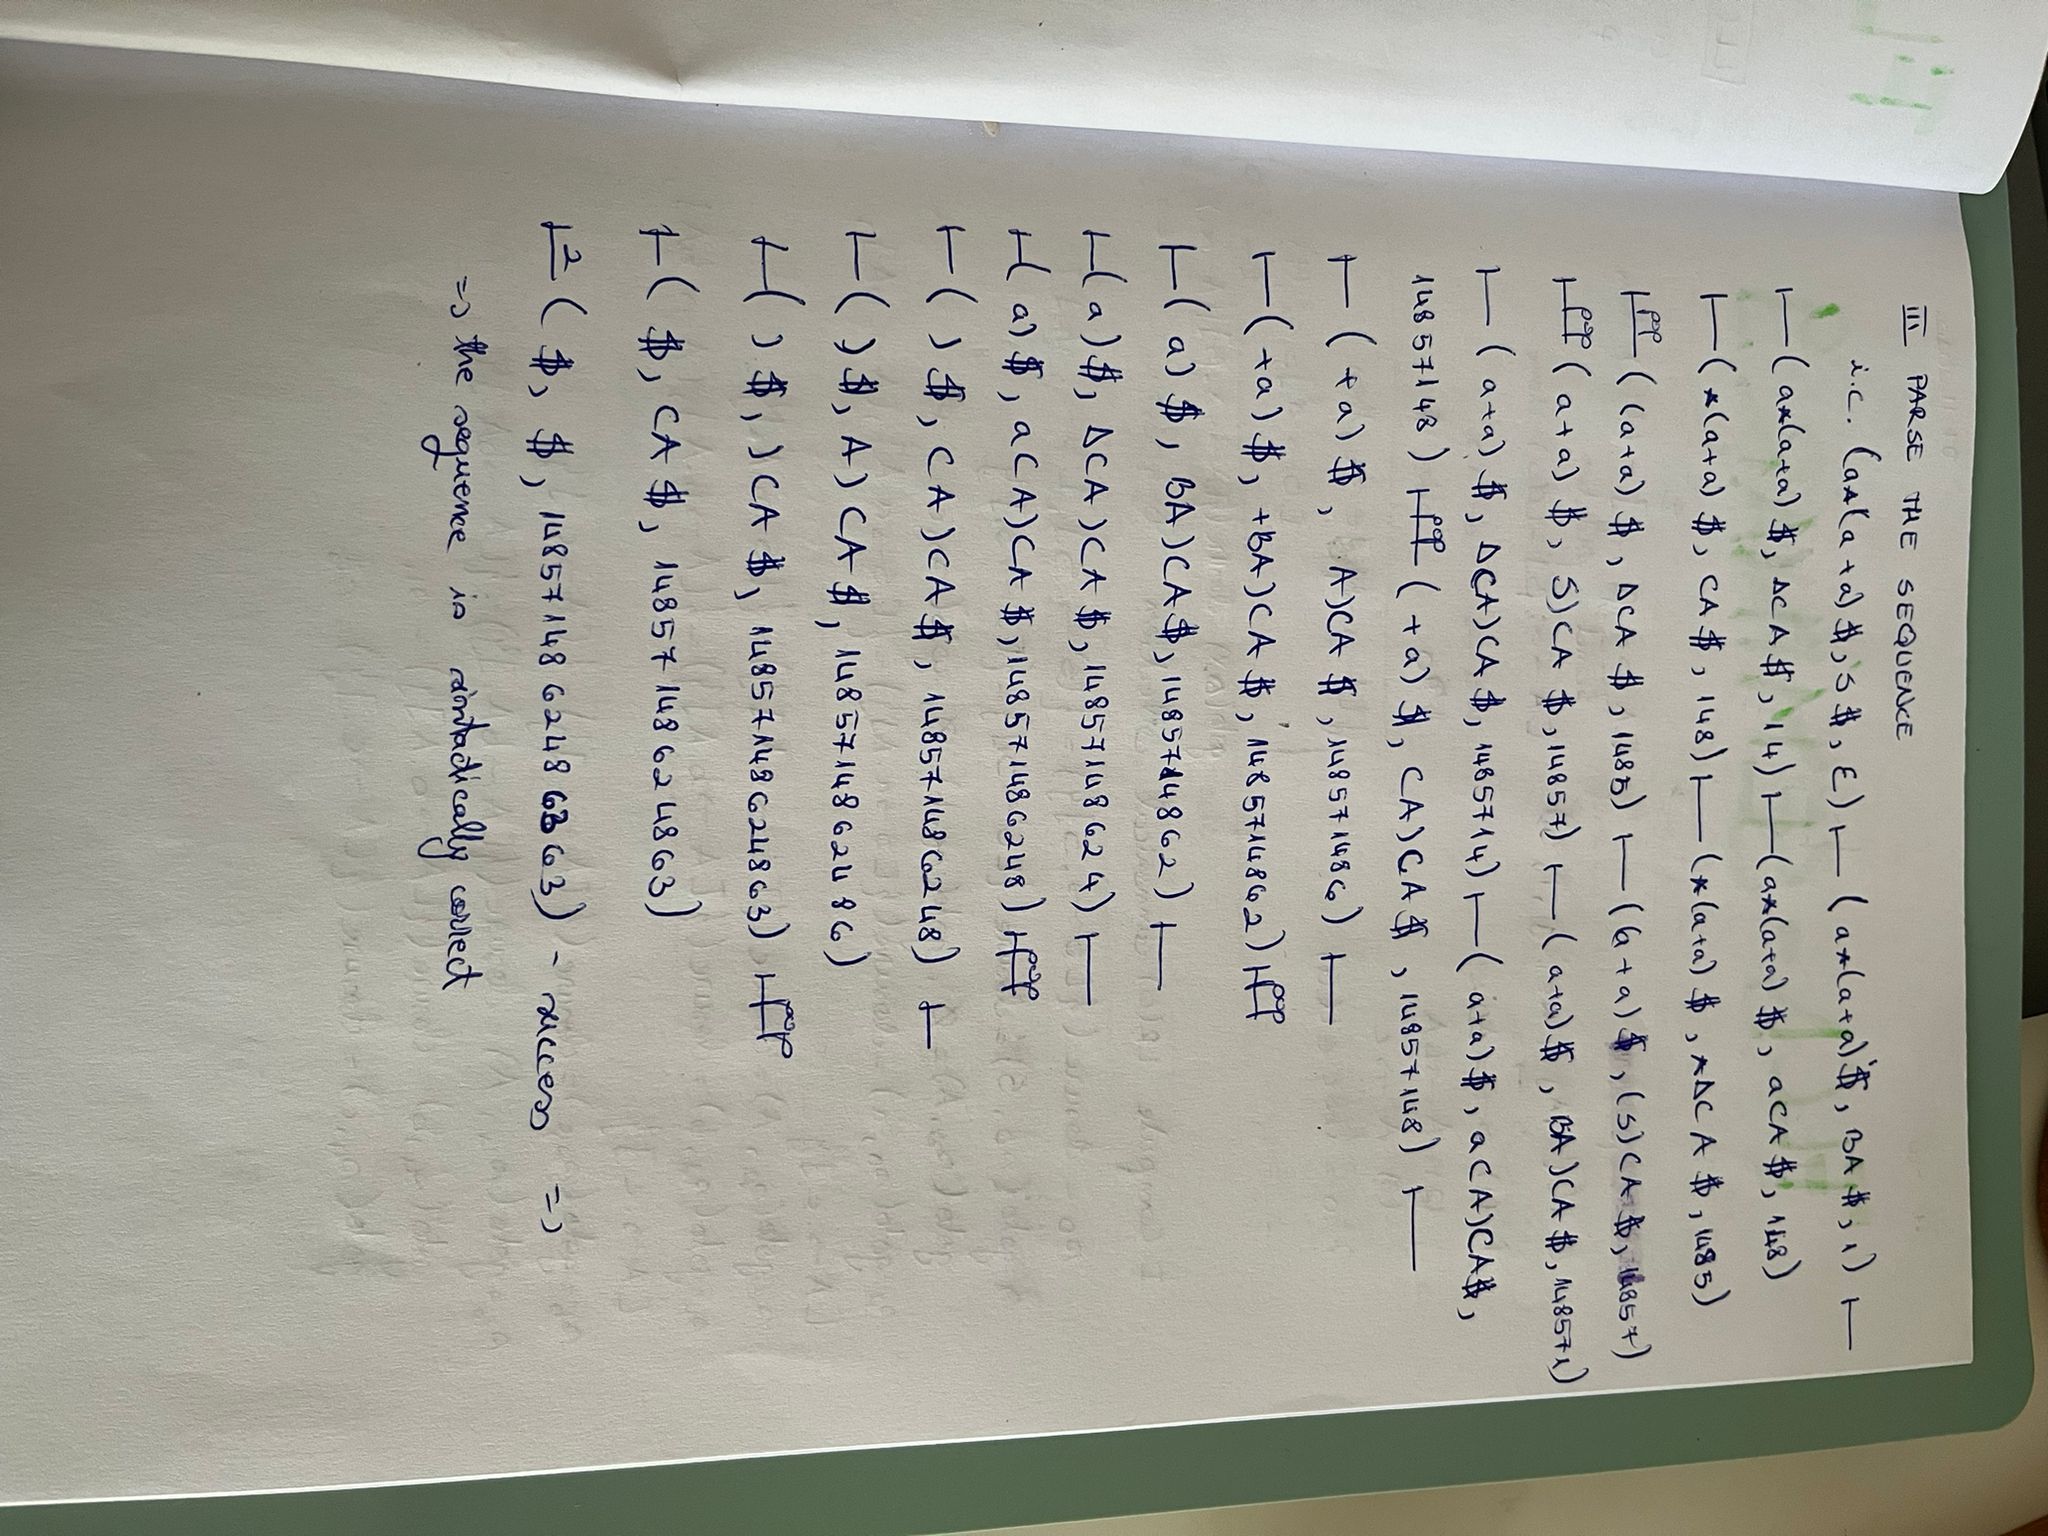 III PARSE THE SEQUENCE
i.c. (a*(a+a)$, S$, ε) ⊢ (a*(a+a)$, BA$, 1) ⊢
⊢ (a*(a+a)$, DCA$, 14) ⊢ (a*(a+a)$, aCA$, 148)
⊢ (*(a+a)$, CA$, 148) ⊢ (*(a+a)$, *DCA$, 1485)
⊢pop ((a+a)$, DCA$, 1485) ⊢ ((a+a)$, (S)CA$, 14857)
⊢pop (a+a)$, S)CA$, 14857) ⊢ (a+a)$, BA)CA$, 148571)
⊢ (a+a)$, DCA)CA$, 1485714) ⊢ (a+a)$, aCA)CA$,
14857148) ⊢pop (+a)$, CA)CA$, 14857148) ⊢
⊢ (+a)$, A)CA$, 148571486) ⊢
⊢ (+a)$, +BA)CA$, 1485714862) ⊢pop
⊢ (a)$, BA)CA$, 1485714862) ⊢
⊢ (a)$, DCA)CA$, 14857148624) ⊢
⊢ (a)$, aCA)CA$, 148571486248) ⊢pop
⊢ ()$, CA)CA$, 148571486248) ⊢
⊢ ()$, A)CA$, 1485714862486)
⊢ ()$, )CA$, 14857148624863) ⊢pop
⊢ ($, CA$, 14857148624863)
⊢2 ($, $, 1485714862486363) - success =>
=> the sequence is sintactically correct